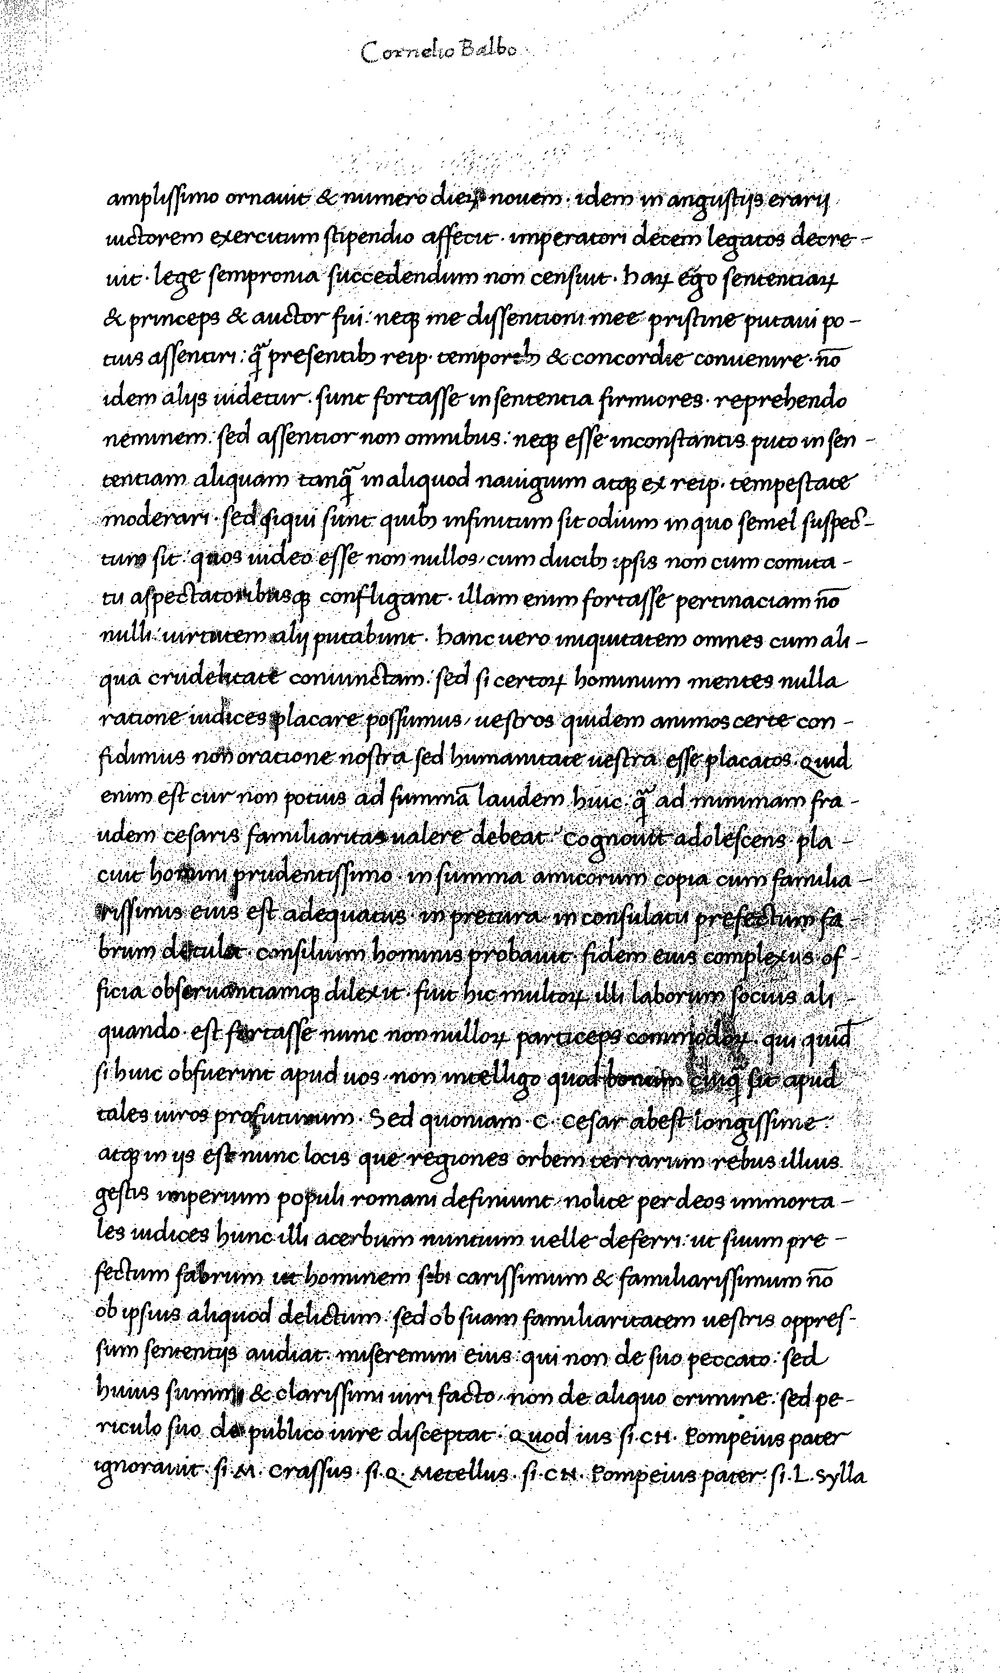 Cornelio Balbo
amplissimo ornauit & numero dieꝝ nouem · idem in angustijs erarij
uictorem exercitum stipendio affecit · imperatori decem legatos decre-
uit · lege sempronia succedendum non censuit · haꝝ ego sententiaꝝ
& princeps & auctor fui: neqꝫ me dissentioni mee pristine putaui po-
tius assentiri: q̃ presentibꝫ reip· temporibꝫ & concordie conuenire · nō
idem alijs uidetur · sunt fortasse in sententia firmiores · reprehendo
neminem: sed assentior non omnibus: neqꝫ esse inconstantis puto in sen-
tentiam aliquam tanq̃ in aliquod nauigium atqꝫ ex reip· tempestate
moderari · sed siqui sunt quibꝫ infinitum sit odium in quo semel suspec-
tum sit · quos uideo esse non nullos, cum ducibꝫ ipsis non cum comita-
tu aspectatoribusqꝫ confligant · illam enim fortasse pertinaciam nō
nulli: uirtutem alij putabunt · hanc uero iniquitatem omnes cum ali-
qua crudelitate coniunctam: sed si certoꝝ hominum mentes nulla
ratione iudices placare possumus, uestros quidem animos certe con-
fidimus non oratione nostra sed humanitate uestra esse placatos · Quid
enim est cur non potius ad summā laudem huic · q̃ ad minimam fra-
udem cesaris familiaritas ualere debeat · Cognouit adolescens · pla-
cuit homini prudentissimo · in summa amicorum copia cum familia-
rissimis eius est adequatus · in pretura · in consulatu prefectum fa-
brum detulit · consilium hominis probauit · fidem eius complexus · of-
ficia obseruantiamqꝫ dilexit · fuit hic multoꝝ illi laborum socius ali-
quando · est fortasse nunc non nulloꝝ particeps commodoꝝ · qui quid̄
si huic obfuerint apud uos · non intelligo quod bonum cuiq̃ sit apud
tales uiros profuturum · Sed quoniam · C · Cesar abest longissime:
atqꝫ in ijs est nunc locis que regiones orbem terrarum rebus illius
gestis imperium populi romani definiunt · nolite per deos immorta-
les iudices hunc illi acerbum nuntium uelle deferri: ut suum pre-
fectum fabrum ut hominem sibi carissimum & familiarissimum nō
ob ipsius aliquod delictum: sed ob suam familiaritatem uestris oppres-
sum sententijs audiat · miseremini eius: qui non de suo peccato: sed
huius summi & clarissimi uiri facto, non de aliquo crimine: sed pe-
riculo suo de publico iure disceptat · Quod ius si · CN · Pompeius pater
ignorauit · si · M · Crassus · si · Q · Metellus · si · CN · Pompeius pater: si · L · Sylla